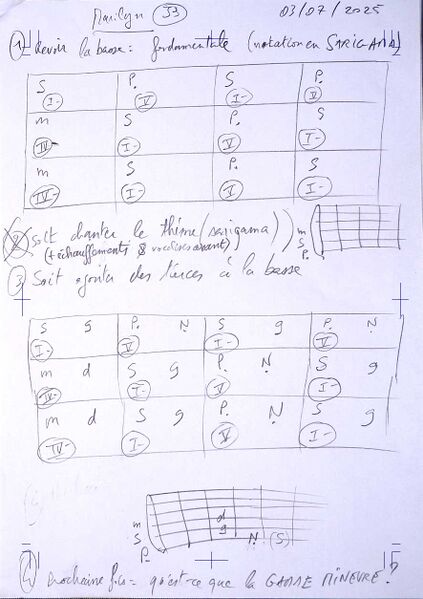 Marilyn 53 03/07/2025
① devoir la basse = fondamentale (notation en SARIGAMA)
S P. S P.
I- V I- V
m S P. S
IV- I- V I-
m S P. S
IV- I- V I-
② Soit chanter le thème (sarigama)
(+ échauffements & vocalises avant)
m
S
P.
③ Soit ajouter des tierces à la basse
S g P. Ṇ S g P. Ṇ
I- V I- V
m d S g P. Ṇ S g
IV- I- V I-
m d S g P. Ṇ S g
IV- I- V I-
m
S d
P. g
Ṇ (S)
prochaine fois = qu'est-ce que la GAMME MINEURE ?